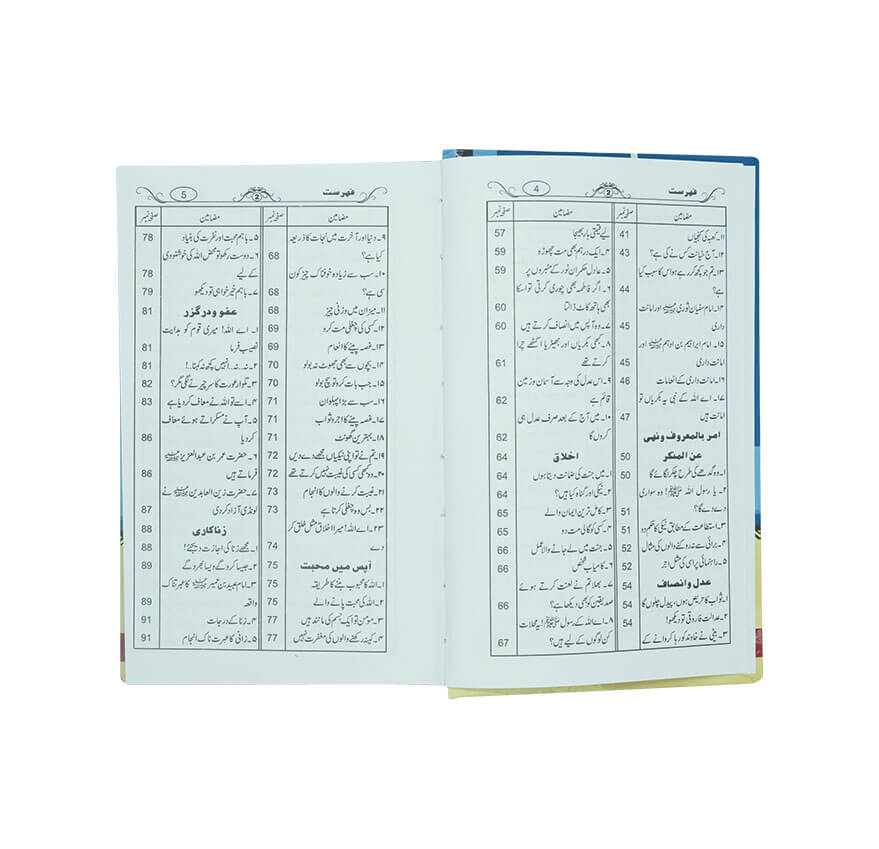 فہرست
2
4
مضامین صفحہ نمبر
۱۱۔ کعبہ کی کنجیاں 41
۱۲۔ آج خیانت کس نے کی ہے؟ 43
۱۳۔ تم جو کچھ کر رہے ہو اس کا سبب کیا
ہے؟ 44
۱۴۔ امام سفیان ثوری رحمۃ اللہ علیہ اور امانت
داری 45
۱۵۔ امام ابراہیم بن ادہم رحمۃ اللہ علیہ اور
امانت داری 45
۱۶۔ امانت داری کے انعامات 46
۱۷۔ اے اللہ کے نبی یہ بکریاں تو
امانت ہیں 47
امر بالمعروف ونہی
عن المنکر 50
۱۔ وہ گدھے کی طرح چکر لگائے گا 50
۲۔ یا رسول اللہ ﷺ! وہ سواری
دے دے گا؟ 51
۳۔ استطاعت کے مطابق نیکی کا حکم دو 51
۴۔ برائی سے نہ روکنے والوں کی مثال 52
۵۔ راہنمائی پر اسی کی مثل اجر 52
عدل وانصاف 54
۱۔ ثواب کا حریص ہوں، پیدل چلوں گا 54
۲۔ عدالت فاروقی تو دیکھو! 54
۳۔ بیٹی نے خاوند کو رہا کروانے کے
مضامین صفحہ نمبر
لیے قیمتی ہار بھیجا 57
۴۔ ایک درہم بھی مت چھوڑو 59
۵۔ عادل حکمران نور کے منبروں پر 59
۶۔ اگر فاطمہ بھی چوری کرتی تو اس کا
بھی ہاتھ کاٹ ڈالتا 60
۷۔ وہ آپس میں انصاف کرتے ہیں 60
۸۔ کبھی بکریاں اور بھیڑیا اکٹھے چرا
کرتے تھے 61
۹۔ اس عدل کی وجہ سے آسمان وزمین
قائم ہے 62
۱۰۔ میں آج کے بعد صرف عدل ہی
کروں گا 62
اخلاق 64
۱۔ میں جنت کی ضمانت دیتا ہوں 64
۲۔ نیکی اور گناہ کیا ہیں؟ 64
۳۔ کامل ترین ایمان والے 65
۴۔ کسی کو گالی مت دو 65
۵۔ جنت میں لے جانے والا عمل 66
۶۔ کامیاب شخص 66
۷۔ بھلا تم نے لعنت کرتے ہوئے
صدیقین کو بھی دیکھا ہے؟ 66
۸۔ اے اللہ کے رسول ﷺ! یہ محلات
کن لوگوں کے لیے ہیں؟ 67
فہرست
2
5
مضامین صفحہ نمبر
۹۔ دنیا اور آخرت میں نجات کا ذریعہ
کیا ہے؟ 68
۱۰۔ سب سے زیادہ خوفناک چیز کون
سی ہے؟ 68
۱۱۔ میزان میں وزنی چیز 68
۱۲۔ کسی کی چغلی مت کرو 69
۱۳۔ غصہ پینے کا انعام 69
۱۴۔ بچوں سے بھی جھوٹ نہ بولو 70
۱۵۔ جب بات کرو تو سچ بولو 70
۱۶۔ سب سے بڑا پہلوان 71
۱۷۔ غصہ پینے کا اجر و ثواب 71
۱۸۔ بہترین گھونٹ 71
۱۹۔ تم نے تو اپنی نیکیاں مجھے دے دیں 72
۲۰۔ وہ کبھی کسی کی غیبت نہیں کرتے تھے 72
۲۱۔ غیبت کرنے والوں کا انجام 73
۲۲۔ بس وہ چغلی کرتا ہے 73
۲۳۔ اے اللہ! میرا اخلاق مثل خلق کر
دے 74
آپس میں محبت 75
۱۔ اللہ کا محبوب بننے کا طریقہ 75
۲۔ اللہ کی محبت پانے والے 75
۳۔ مومن تو ایک جسم کی مانند ہیں 77
۴۔ کینہ رکھنے والوں کی مغفرت نہیں 77
مضامین صفحہ نمبر
۵۔ باہم محبت اور نفرت کی بنیاد 78
۶۔ دوست رکھو تو محض اللہ کی خوشنودی
کے لیے 78
۷۔ باہم خیر خواہی تو دیکھو 79
عفو ودرگزر 81
۱۔ اے اللہ! میری قوم کو ہدایت
نصیب فرما 81
۲۔ نہ..نہ..انہیں کچھ نہ کہنا..! 81
۳۔ گوار عورت کا سر چیرنے لگی مگر؟ 82
۴۔ اسے تو اللہ نے معاف کر دیا ہے 83
۵۔ آپ نے مسکراتے ہوئے معاف
کر دیا 86
۶۔ حضرت عمر بن عبدالعزیز رحمۃ اللہ علیہ
فرماتے ہیں 86
۷۔ حضرت زین العابدین رحمۃ اللہ علیہ نے
لونڈی آزاد کر دی 87
زناکاری 88
۱۔ مجھے زنا کی اجازت دیجئے! 88
۲۔ جیسا کرو گے ویسا بھرو گے 89
۳۔ امام عبید بن عمیر رحمۃ اللہ علیہ کا عبرتناک
واقعہ 89
۴۔ زنا کے درجات 91
۵۔ زانی کا عبرت ناک انجام 91